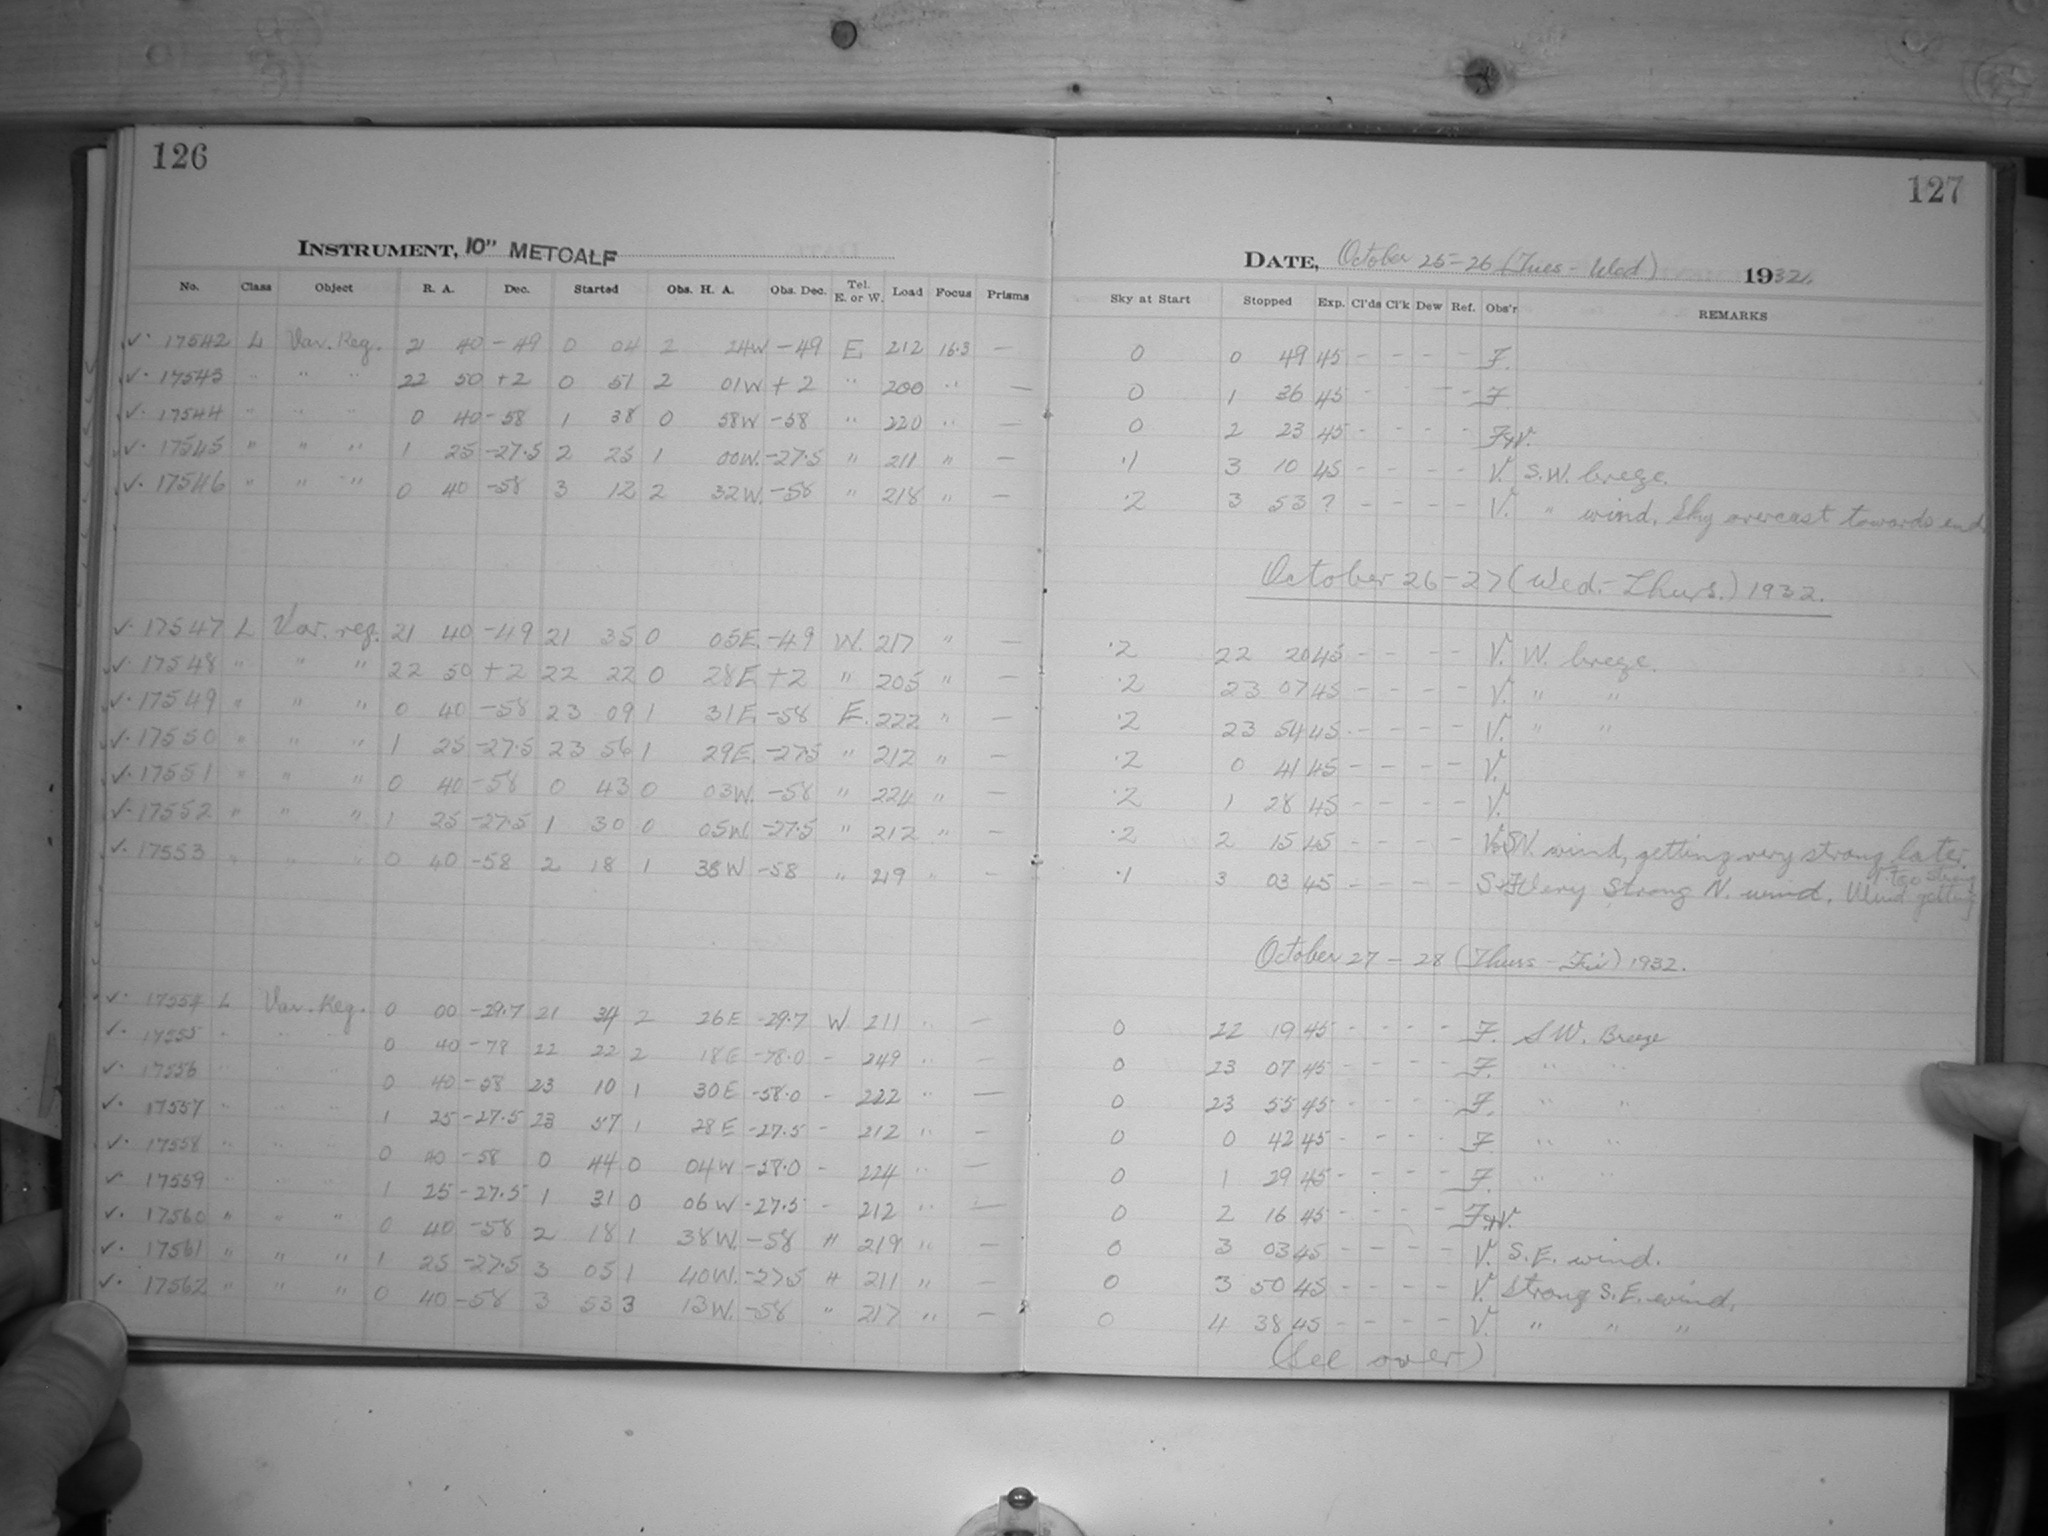 126
127
INSTRUMENT, 10" METCALF
DATE, October 25-26 (Tues - Wed) 1932
No. Class Object R. A. Dec. Started Obs. H. A. Obs. Dec. Tel. E. or W. Load Focus Prisms Sky at Start Stopped Exp. Cl'ds Cl'k Dew Ref. Obs'r REMARKS
✓. 17542 L Var. Reg. 21 40 -49 0 04 2 24W -49 E 212 16.3 — 0 0 49 45 - - - - F.
✓. 17543 " " " 22 50 +2 0 51 2 01W +2 " 200 " — 0 1 36 45 - - - - F
✓. 17544 " " " 0 40 -58 1 38 0 58W -58 " 220 " — 0 2 23 45 - - - - F+V.
✓. 17545 " " " 1 25 -27.5 2 25 1 00W. -27.5 " 211 " — .1 3 10 45 - - - - V. S.W. breeze.
✓. 17546 " " " 0 40 -58 3 12 2 32W. -58 " 218 " — .2 3 53 ? - - - - V. " wind. Sky overcast towards end
October 26-27 (Wed.- Thurs.) 1932.
✓. 17547 L Var. reg. 21 40 -49 21 35 0 05E. -49 W. 217 " — .2 22 20 45 - - - - V. W. breeze.
✓. 17548 " " " 22 50 +2 22 22 0 28E +2 " 205 " — .2 23 07 45 - - - - V. " "
✓. 17549 " " " 0 40 -58 23 09 1 31E. -58 E. 222 " — .2 23 54 45 - - - - V. " "
✓. 17550 " " " 1 25 -27.5 23 56 1 29E. -27.5 " 212 " — .2 0 41 45 - - - - V.
✓. 17551 " " " 0 40 -58 0 43 0 03W. -58 " 224 " — .2 1 28 45 - - - - V.
✓. 17552 " " " 1 25 -27.5 1 30 0 05W. -27.5 " 212 " — .2 2 15 45 - - - - N. wind, getting very strong later.
✓. 17553 " " " 0 40 -58 2 18 1 38W -58 " 219 " — .1 3 03 45 - - - - Very strong N. wind. Wind getting too strong
October 27 - 28 (Thurs - Fri) 1932.
✓. 17554 L Var. Reg. 0 00 -29.7 21 34 2 26E -29.7 W 211 " — 0 22 19 45 - - - - F. S W. Breeze
✓. 17555 " " " 0 40 -78 22 22 2 18E -78.0 - 249 " — 0 23 07 45 - - - - F. " "
✓. 17556 " " " 0 40 -58 23 10 1 30E -58.0 - 222 " — 0 23 55 45 - - - - F. " "
✓. 17557 " " " 1 25 -27.5 23 57 1 28E -27.5 - 212 " — 0 0 42 45 - - - - F " "
✓. 17558 " " " 0 40 -58 0 44 0 04W -58.0 - 224 " — 0 1 29 45 - - - - F. " "
✓ 17559 " " " 1 25 -27.5 1 31 0 06W -27.5 - 212 " — 0 2 16 45 - - - - F+V.
✓. 17560 " " " 0 40 -58 2 18 1 38W. -58 " 219 " — 0 3 03 45 - - - - V. S.E. wind.
✓. 17561 " " " 1 25 -27.5 3 05 1 40W. -27.5 " 211 " — 0 3 50 45 - - - - V. Strong S.E. wind.
✓. 17562 " " " 0 40 -58 3 53 3 13W. -58 " 217 " — 0 4 38 45 - - - - V. " " "
(See over)